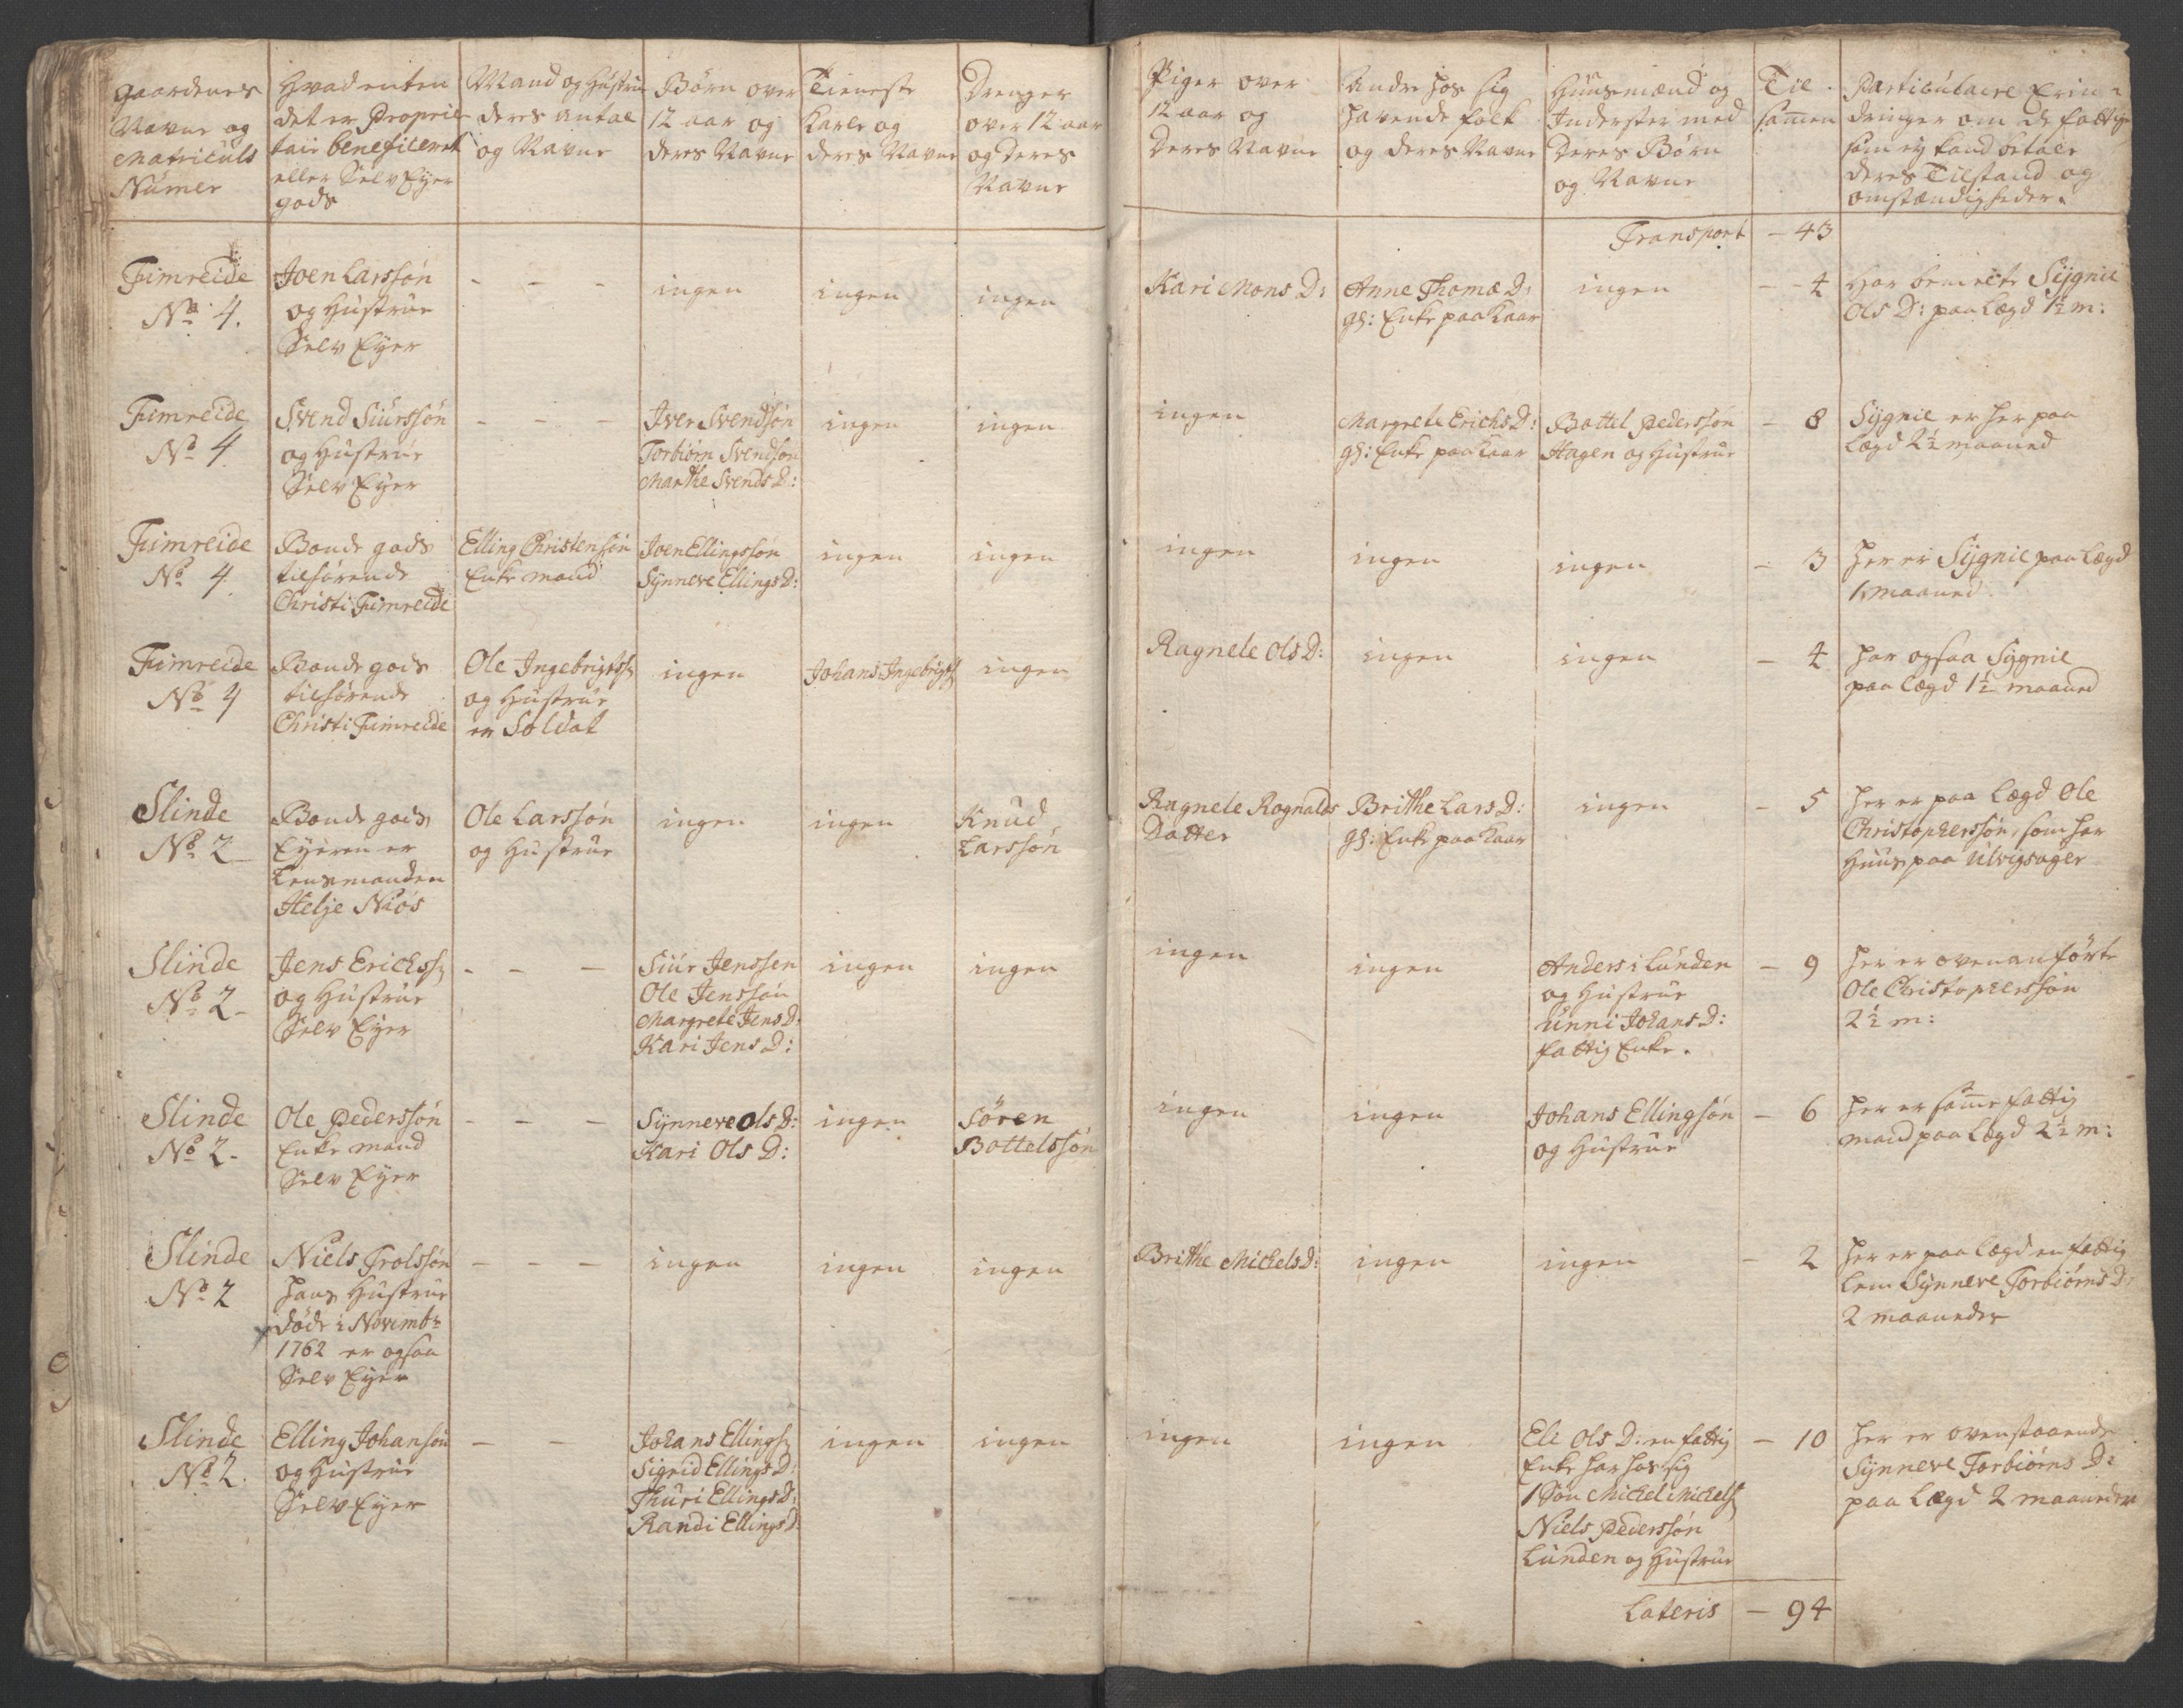 Gaardenes
Navne og
Matriculs
Numer
Hvad enten
det er Proprie
tair beneficeret
eller Selv Eyer
gods
Mand og Hustrue
deres Antal
og Navne
Børn over
12 aar og
deres Navne
Tieneste
Karle og
deres Navne
Drenger
over 12 aar
og deres
Navne
Piger over
12 aar og
Deres Navne
Andre hos sig
havende folk
og deres Navne
Huusmænd og
Inderster med
Deres Børn
og Navne
Til
samen
Particulaire Erin
dringer om de fattige
som ey kand betale
deres Tilstand og
omstændigheder.
Transport - 43
Fimreide
No 4.
Joen Larssøn
og Hustrue
Selv Eyer
- - -
ingen
ingen
ingen
Kari Mons D:
Anne Thomæ D:
gl: Enke paa Kaar
ingen
- - 4
har bemelte Sygnie
Ols D: paa Lægd 1½ m:
Fimreide
No 4
Svend Siurssøn
og Hustrue
Selv Eyer
- - -
Iver Svendsøn
Torbiørn Svendsøn
Marthe Svends D:
ingen
ingen
ingen
Margrete Erichs D:
gl: Enke paa Kaar
Bottel Pederssøn
Hagen og Hustrue
- 8
Sygnie er her paa
Lægd 2½ maaned
Fimreide
No 4.
Bonde gods
tilhørende
Christi Fimreide
Elling Christensøn
Enke mand
Joen Ellingssøn
Synneve Ellings D:
ingen
ingen
ingen
ingen
ingen
- 3
her er Sygnie paa Lægd
1 maaned
Fimreide
No 4
Bonde gods
tilhørende
Christi Fimreide
Ole Ingebrigtss:
og Hustrue
er Soldat
ingen
Johans Ingebrigts:
ingen
Ragnele Ols D:
ingen
ingen
- 4
har ogsaa Sygnie
paa Lægd 1½ maaned
Slinde
No 2
Bonde gods
Eyeren er
Lensmanden
Helje Niøs
Ole Larssøn
og Hustrue
ingen
ingen
Knud
Larssøn
Ragnele Rognalds
Datter
Brithe Lars D:
gl: Enke paa Kaar
ingen
- 5
her er paa Lægd Ole
Christophersøn, som har
Huus paa Ulvigsager
Slinde
No 2
Jens Erichss:
og Hustrue
Selv Eyer
- - -
Siur Jenssen
Ole Jenssøn
Margrete Jens D:
Kari Jens D:
ingen
ingen
ingen
ingen
Anders i Lunden
og Hustrue
unni Johans D:
fattig Enke.
- 9
her er ovenanførte
Ole Christophersøn
2½ m:
Slinde
No 2.
Ole Pederssøn
Enke mand
Selv Eyer
- - -
Synneve Ols D:
Kari Ols D:
ingen
Søren
Bottelssøn
ingen
ingen
Johans Ellingsøn
og Hustrue
- 6
her er samme fattig
mand paa Lægd 2½ m:
Slinde
No 2
Niels Trolssøn
hans Hustrue
døde i Novembr
1762 er ogsaa
Selv Eyer
- - -
ingen
ingen
ingen
Brithe Michels D:
ingen
ingen
- 2
her er paa Lægd en fattig
lem Synneve Torbiørns D:
2 maaneder
Slinde
No 2.
Elling Johansøn
og Hustrue
Selv Eyer
- -
Johans Ellings:
Sigrid Ellings D:
Thuri Ellings D:
Randi Ellings D:
ingen
ingen
ingen
ingen
Eli Ols D: en fattig
Enke har hos sig
1 Søn Michel Michels:
Niels Pederssøn
Lunden og Hustrue
- 10
her er ovenstaaende
Synneve Torbiørns D:
paa Lægd 2 maaneder
Lateris - 94